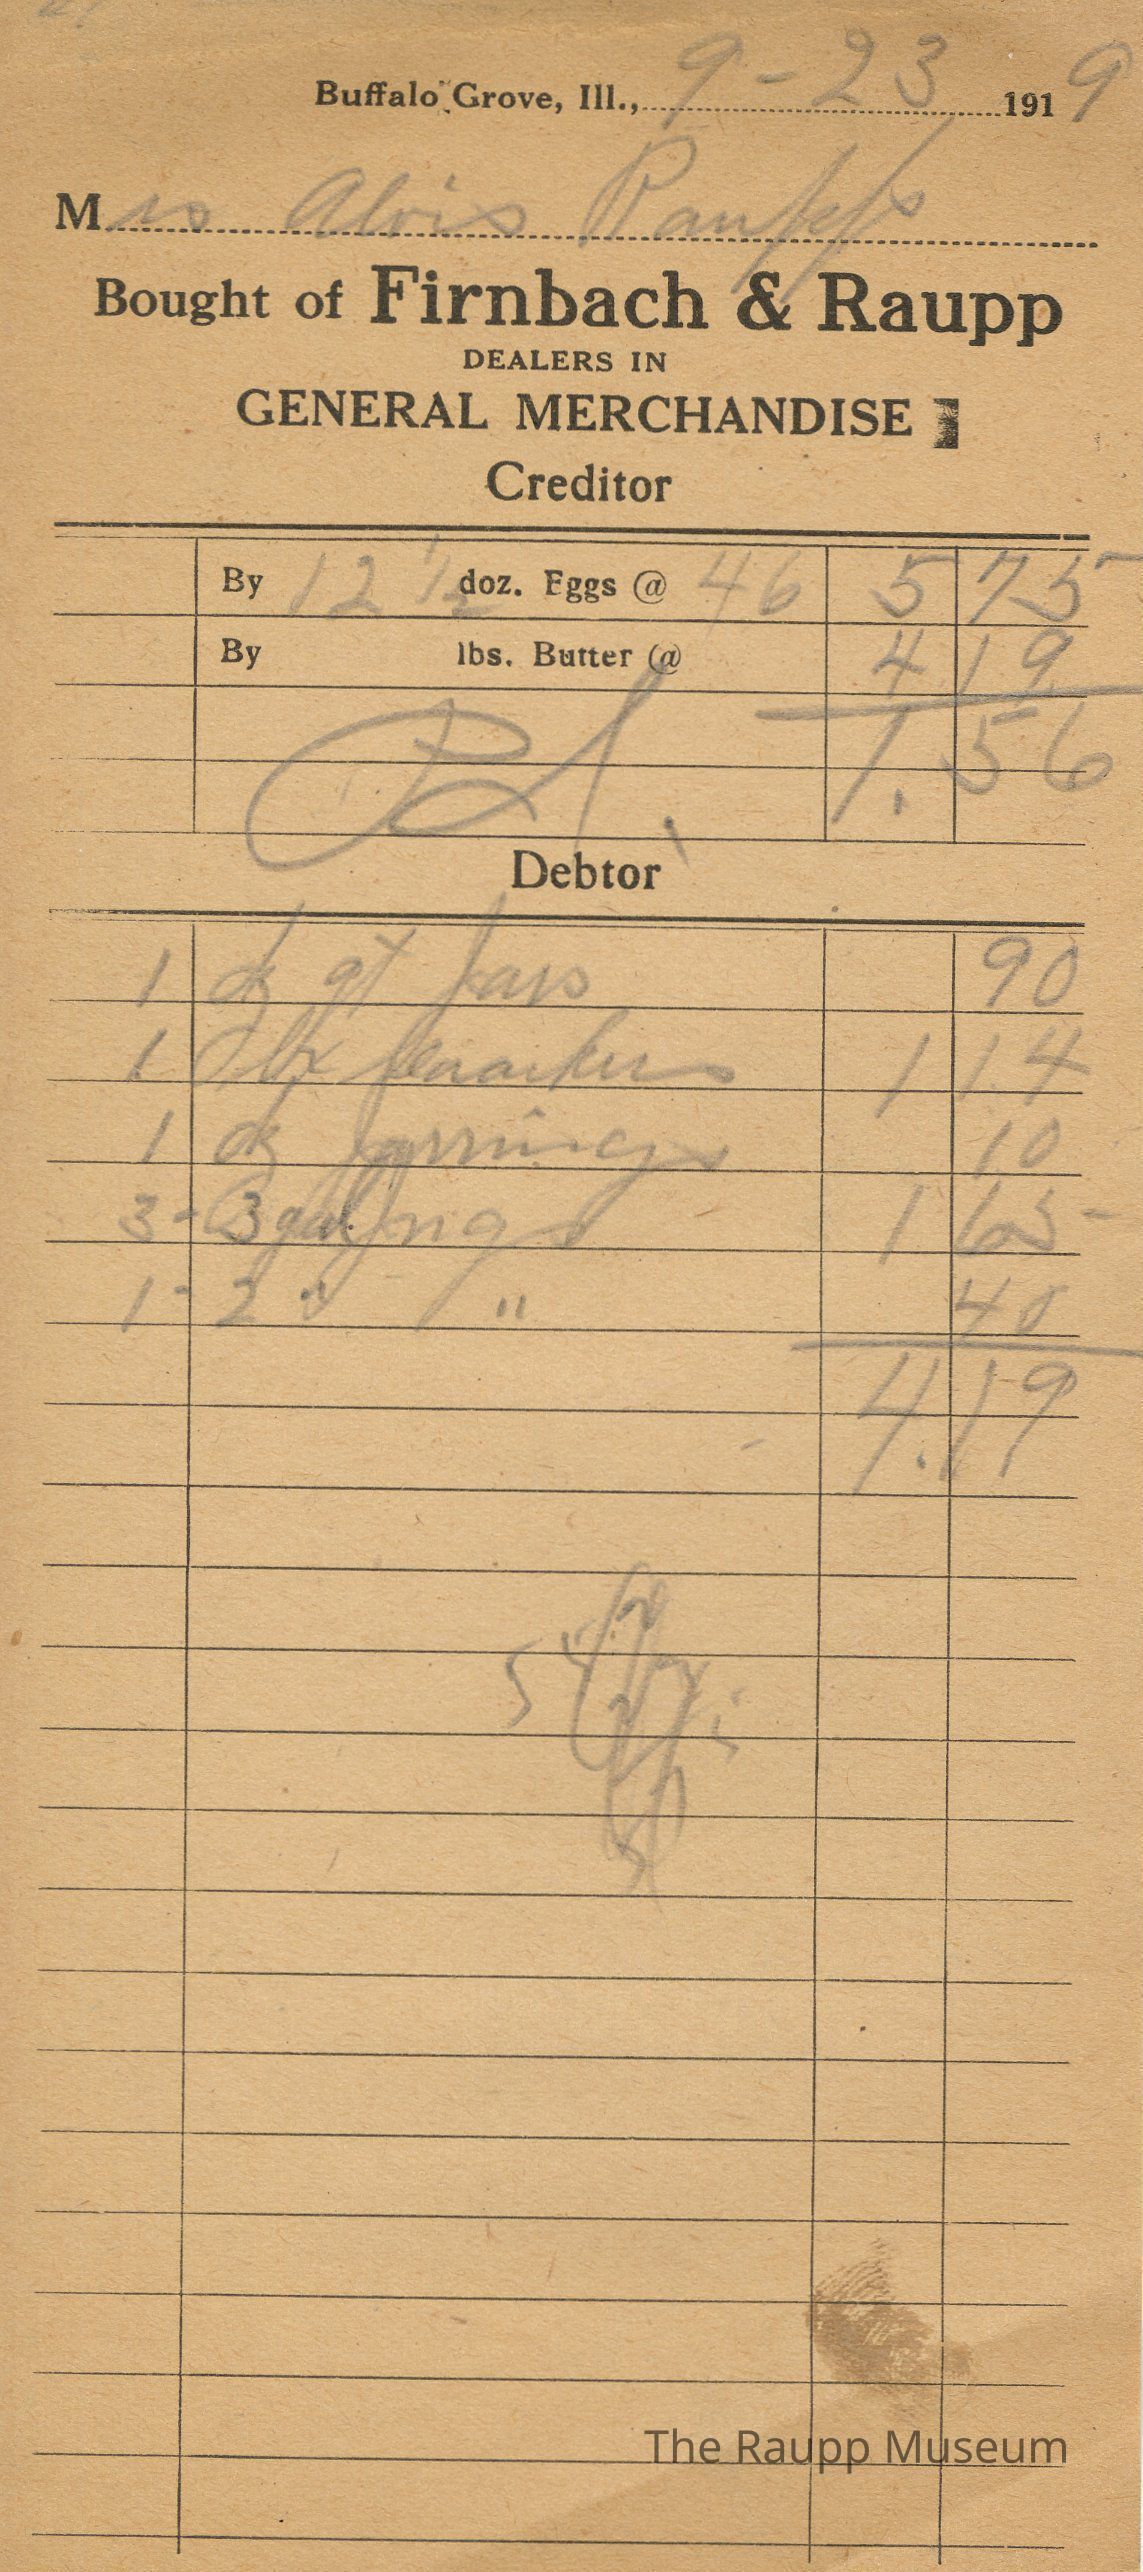 Buffalo Grove, Ill., 9-23 1919
Mrs Alois Raupp
Bought of Firnbach & Raupp
DEALERS IN
GENERAL MERCHANDISE
Creditor
By 12 1/2 doz. Eggs @ 46 5 75
By lbs. Butter @ 4 19
1.56
Debtor
1 dz qt Jars 90
1 crackers 1 14
1 dz jar rings 10
3 - 3 gal Jugs 1 65
1 - 2 " " 40
4.19
The Raupp Museum